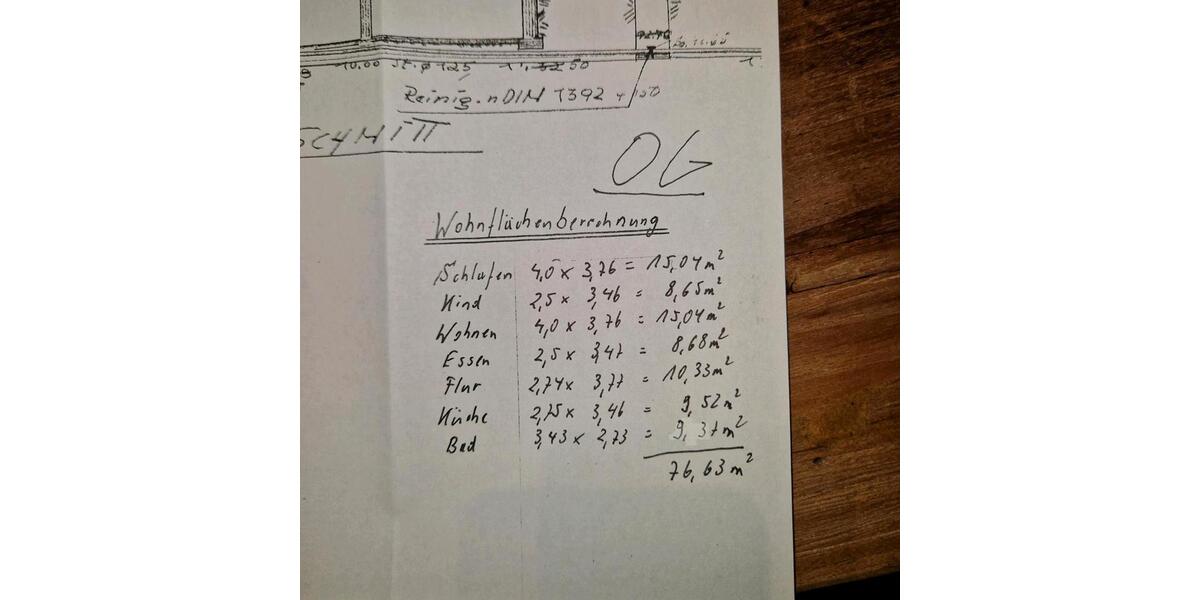 10.00 St. ø 125
Reinig. n DIN 1392
OG
Wohnflächenberechnung
Schlafen 4,0 x 3,76 = 15,04 m²
Kind 2,5 x 3,46 = 8,65 m²
Wohnen 4,0 x 3,76 = 15,04 m²
Essen 2,5 x 3,47 = 8,68 m²
Flur 2,74 x 3,77 = 10,33 m²
Küche 2,75 x 3,46 = 9,52 m²
Bad 3,43 x 2,73 = 9,37 m²
76,63 m²